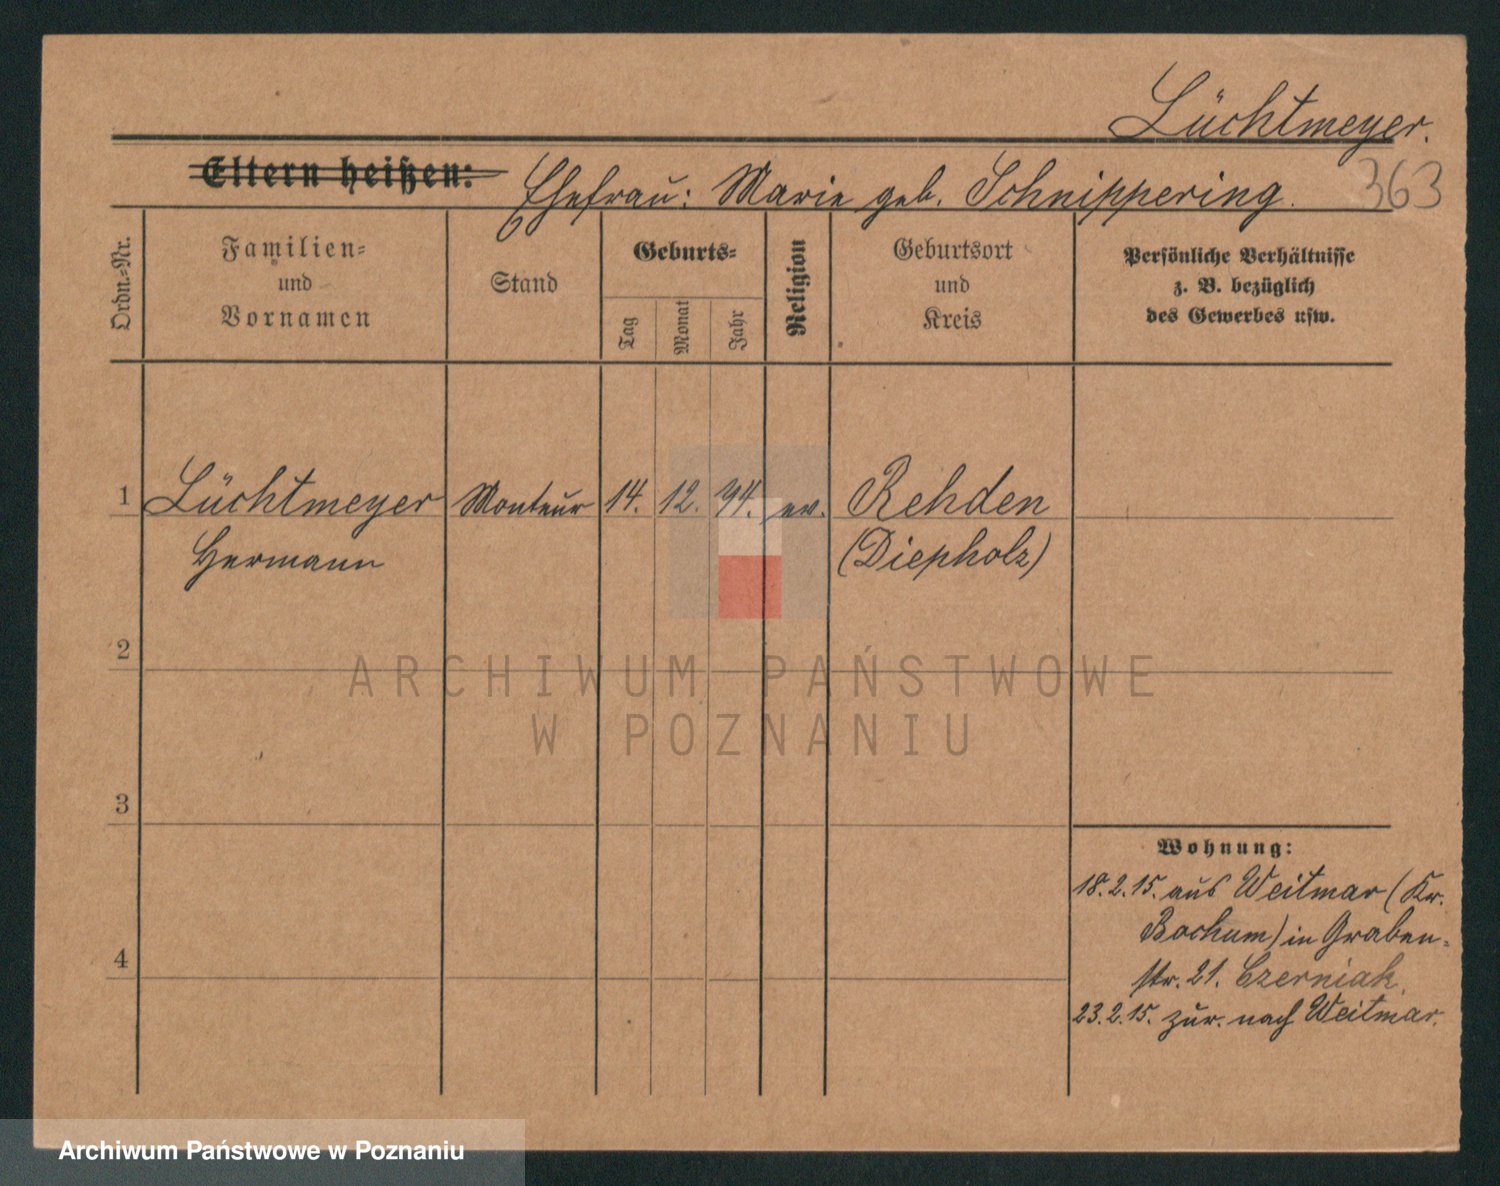 Lüchtmeyer.
Eltern heißen: Ehefrau: Marie geb. Schnippering. 363
Ordn.-Nr.
Familien-
und
Vornamen
Stand
Geburts-
Tag
Monat
Jahr
Religion
Geburtsort
und
Kreis
Persönliche Verhältnisse
z. B. bezüglich
des Gewerbes usw.
1 Lüchtmeyer Monteur 14. 12. 74. ev. Rehden
Hermann (Diepholz)
2
ARCHIWUM PAŃSTWOWE
W POZNANIU
3
Wohnung:
18.2.15. aus Weitmar (Kr.
Bochum) in Graben-
4
str. 21. Czerniak.
23.2.15. zur. nach Weitmar.
Archiwum Państwowe w Poznaniu